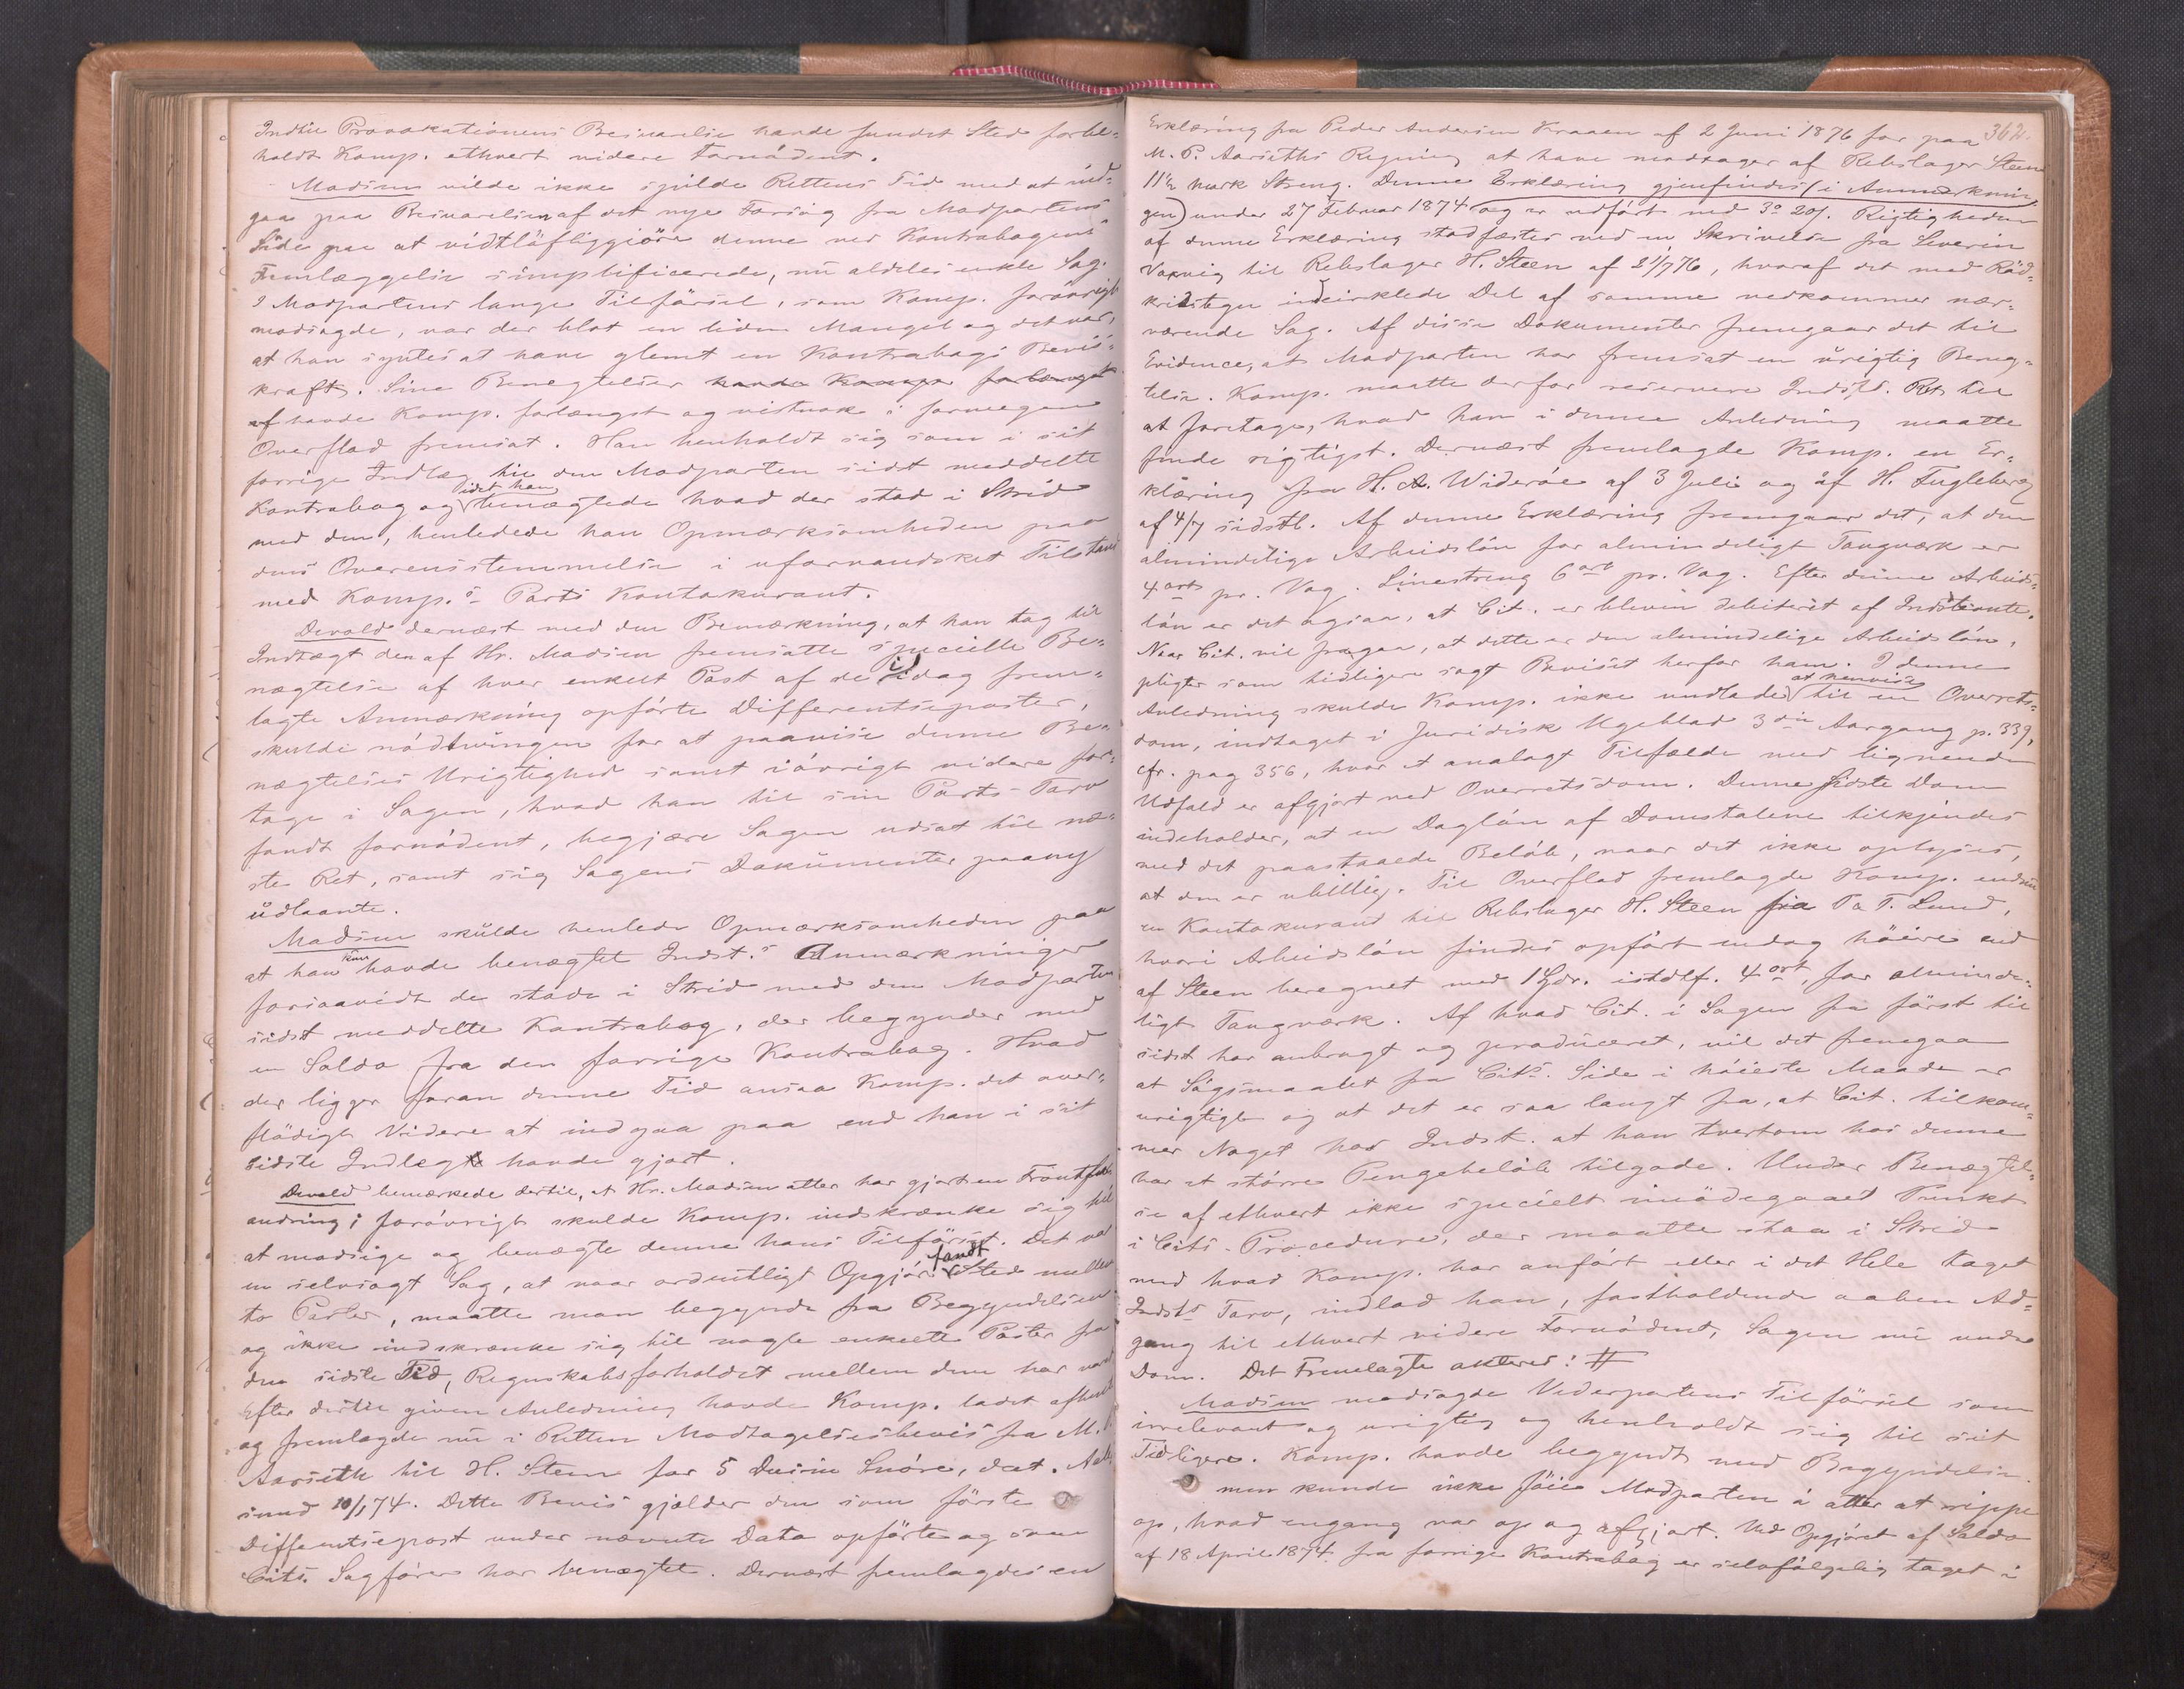 Indtil Provokationens Besvarelse havde fundet Sted forbe-
holdt Komp. ethvert videre Fornødent.
Madsen vilde ikke spilde Rettens Tid med at ind-
gaa paa Besvarelsen af det nye Forsøg fra Modpartens
Side paa at vidtløftiggjøre denne ved Kontrabogens
Fremlæggelse simplificerede, nu aldeles enkle Sag.
I Modpartens lange Tilførsel, som Komp. forøvrigt
modsagde, var der blot en liden Mangel og det var,
at han syntes at have glemt en Kontrabogs Bevis-
kraft. Sine Benegtelser havde Komp. forlængst
af havde Komp. forlængst og vistnok i formegen
Overflod fremsat. Han henholdt sig som i sit
forrige Indlæg til den Modparten sidst meddelte
Kontrabog og idet han benægtede hvad der stod i Strid
med den, henledede han Opmærksomheden paa
dens Overensstemmelse i uforvandsket Tilstand
med Komp.s Parts Kontokurant.
Devold dernæst med den Bemærkning, at han tog til
Indtægt den af Hr. Madsen fremsatte specielle Be-
nægtelse af hver enkelt Post af de i idag frem-
lagte Anmærkning opførte Differentseposter,
skulde nødtvingen for at paavise denne Be-
nægtelses Urigtighed samt iøvrigt videre fore-
tage i Sagen, hvad han til sin Parts Tarv
fandt fornødent, begjære Sagen udsat til næ-
ste Ret, samt sig Sagens Dokumenter paany
udlaante.
Madsen skulde henlede Opmærksomheden paa
at han kun havde benægtet Indst.s Anmærkninger
forsaavidt de stode i Strid med den Modparten
sidst meddelte Kontrabog, der begynder med
en Saldo fra den forrige Kontrabog. Hvad
der ligger foran denne Tid ansaa Komp. det over-
flødigt Videre at indgaa paa end han i sit
sidste Indlæg havde gjort.
Devold bemærkede dertil, at Hr. Madsen atter har gjort en Frontfor-
andring; forøvrigt skulde Komp. indskrænke sig til
at modsige og benægte denne hans Tilførsel. Det var
en selvsagt Sag, at naar ordentligt Opgjør fandt Sted mellem
to Parter, maatte man begynde fra Begyndelsen
og ikke indskrænke sig til nogle enkelte Poster fra
den sidste Tid, Regnskabsforholdet mellem dem har varet
Efter dertil given Anledning havde Komp. ladet afhente
og fremlagde nu i Retten Modtagelsesbevis fra M. P.
Aarseth til H. Steen for 5 Dusin Snøre, dat. Aale-
sund 10/1 74. Dette Bevis gjælder den som første
Differentsepost under nævnte Dato opførte og som
Cits. Sagfører har benægtet. Dernæst fremlagdes en
362.
Erklæring fra Peder Andersen Kraaen af 2 Juni 1876 for paa
M. P. Aarseths Regning at have modtaget af Rebslager Steen
11½ Mark Streng. Denne Erklæring gjenfindes (i Anmærknin-
gen) under 27 Februar 1874 og er udført med 3o 20s. Rigtigheden
af denne Erklæring stadfæstes ved en Skrivelse fra Severin
Vaxvig til Rebslager H. Steen af 21/7 76, hvoraf det med Rød-
kridsteger indcirklede Del af samme vedkommer nær-
værende Sag. Af disse Dokumenter fremgaar det til
Evidence, at Modparten har fremsat en urigtig Beneg-
telse. Komp. maatte derfor reservere Indst. Ret til
at foretage, hvad han i denne Anledning maatte
finde rigtigst. Dernæst fremlagde Komp. en Er-
klæring fra H. A. Widerøe af 3 Juli og af H. Fugleberg
af 4/7 sidstl. Af denne Erklæring fremgaar det, at den
almindelige Arbeidsløn for almindeligt Tougværk er
4 ort pr. Vog. Linestreng 6 ort pr. Vog. Efter denne Arbeids-
løn er det ogsaa, at Cit. er bleven debiteret af Indstevnte.
Naar Cit. vil fragaa, at dette er den almindelige Arbeidsløn,
pligter som tidligere sagt Beviset herfor ham. I denne
Anledning skulde Komp. ikke undlade at henvise til en Overrets-
dom, indtaget i Juridisk Ugeblad 3die Aargang p. 339,
cfr. pag 356, hvor et analogt Tilfælde med lignende
Udfald er afgjort ved Overretsdom. Denne sidste Dom
indeholder, at en Dagløn af Domstolene tilkjendes
med det paastaaede Beløb, naar det ikke oplyses,
at den er ubillig. Til Overflod fremlagde Komp. endnu
en Kontokurant til Rebslager H. Steen fra P. T. Lund,
hvori Arbeidsløn findes opført endog høiere end
af Steen beregnet med 1 Spdr. istdtf. 4 ort, for alminde-
ligt Tougværk. Af hvad Cit. i Sagen fra først til
sidst har anbragt og produceret, vil det fremgaa
at Søgsmaalet fra Cits. Side i høieste Maade er
urigtigt og at det er saa langt fra, at Cit. tilkom-
mer Noget hos Indst. at han tvertom hos denne
har et større Pengebeløb tilgode. Under Benægtel-
se af ethvert ikke specielt imødegaaet Punkt
i Cits. Procedure, der maatte staa i Strid
med hvad Komp. har anført eller i det Hele taget
Indsts. Tarv, indlod han, fastholdende aaben Ad-
gang til ethvert videre Fornødent, Sagen nu under
Dom. Det Fremlagte akteres: #
Madsen modsagde Vederpartens Tilførsel som
irrelevant og urigtig og henholdt sig til sit
Tidligere. Komp. havde begyndt med Begyndelsen.
men kunde ikke føie Modparten i atter at rippe
op, hvad engang var op og afgjort. Ved Opgjøret af Saldo
af 18 April 1874 fra forrige Kontrabog er selvfølgelig taget i